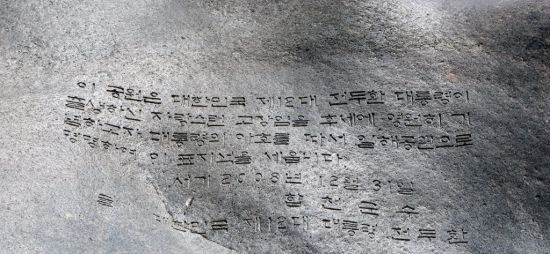 이 공원은 대한민국 제12대 전두환 대통령이
출생하신 자랑스런 고장임을 후세에 영원히 기
념하고자 대통령의 아호를 따서 일해공원으로
명명하여 이 표지석을 세웁니다.
서기 2008년 12월 31일
합천군수
대한민국 제12대 대통령 전두환